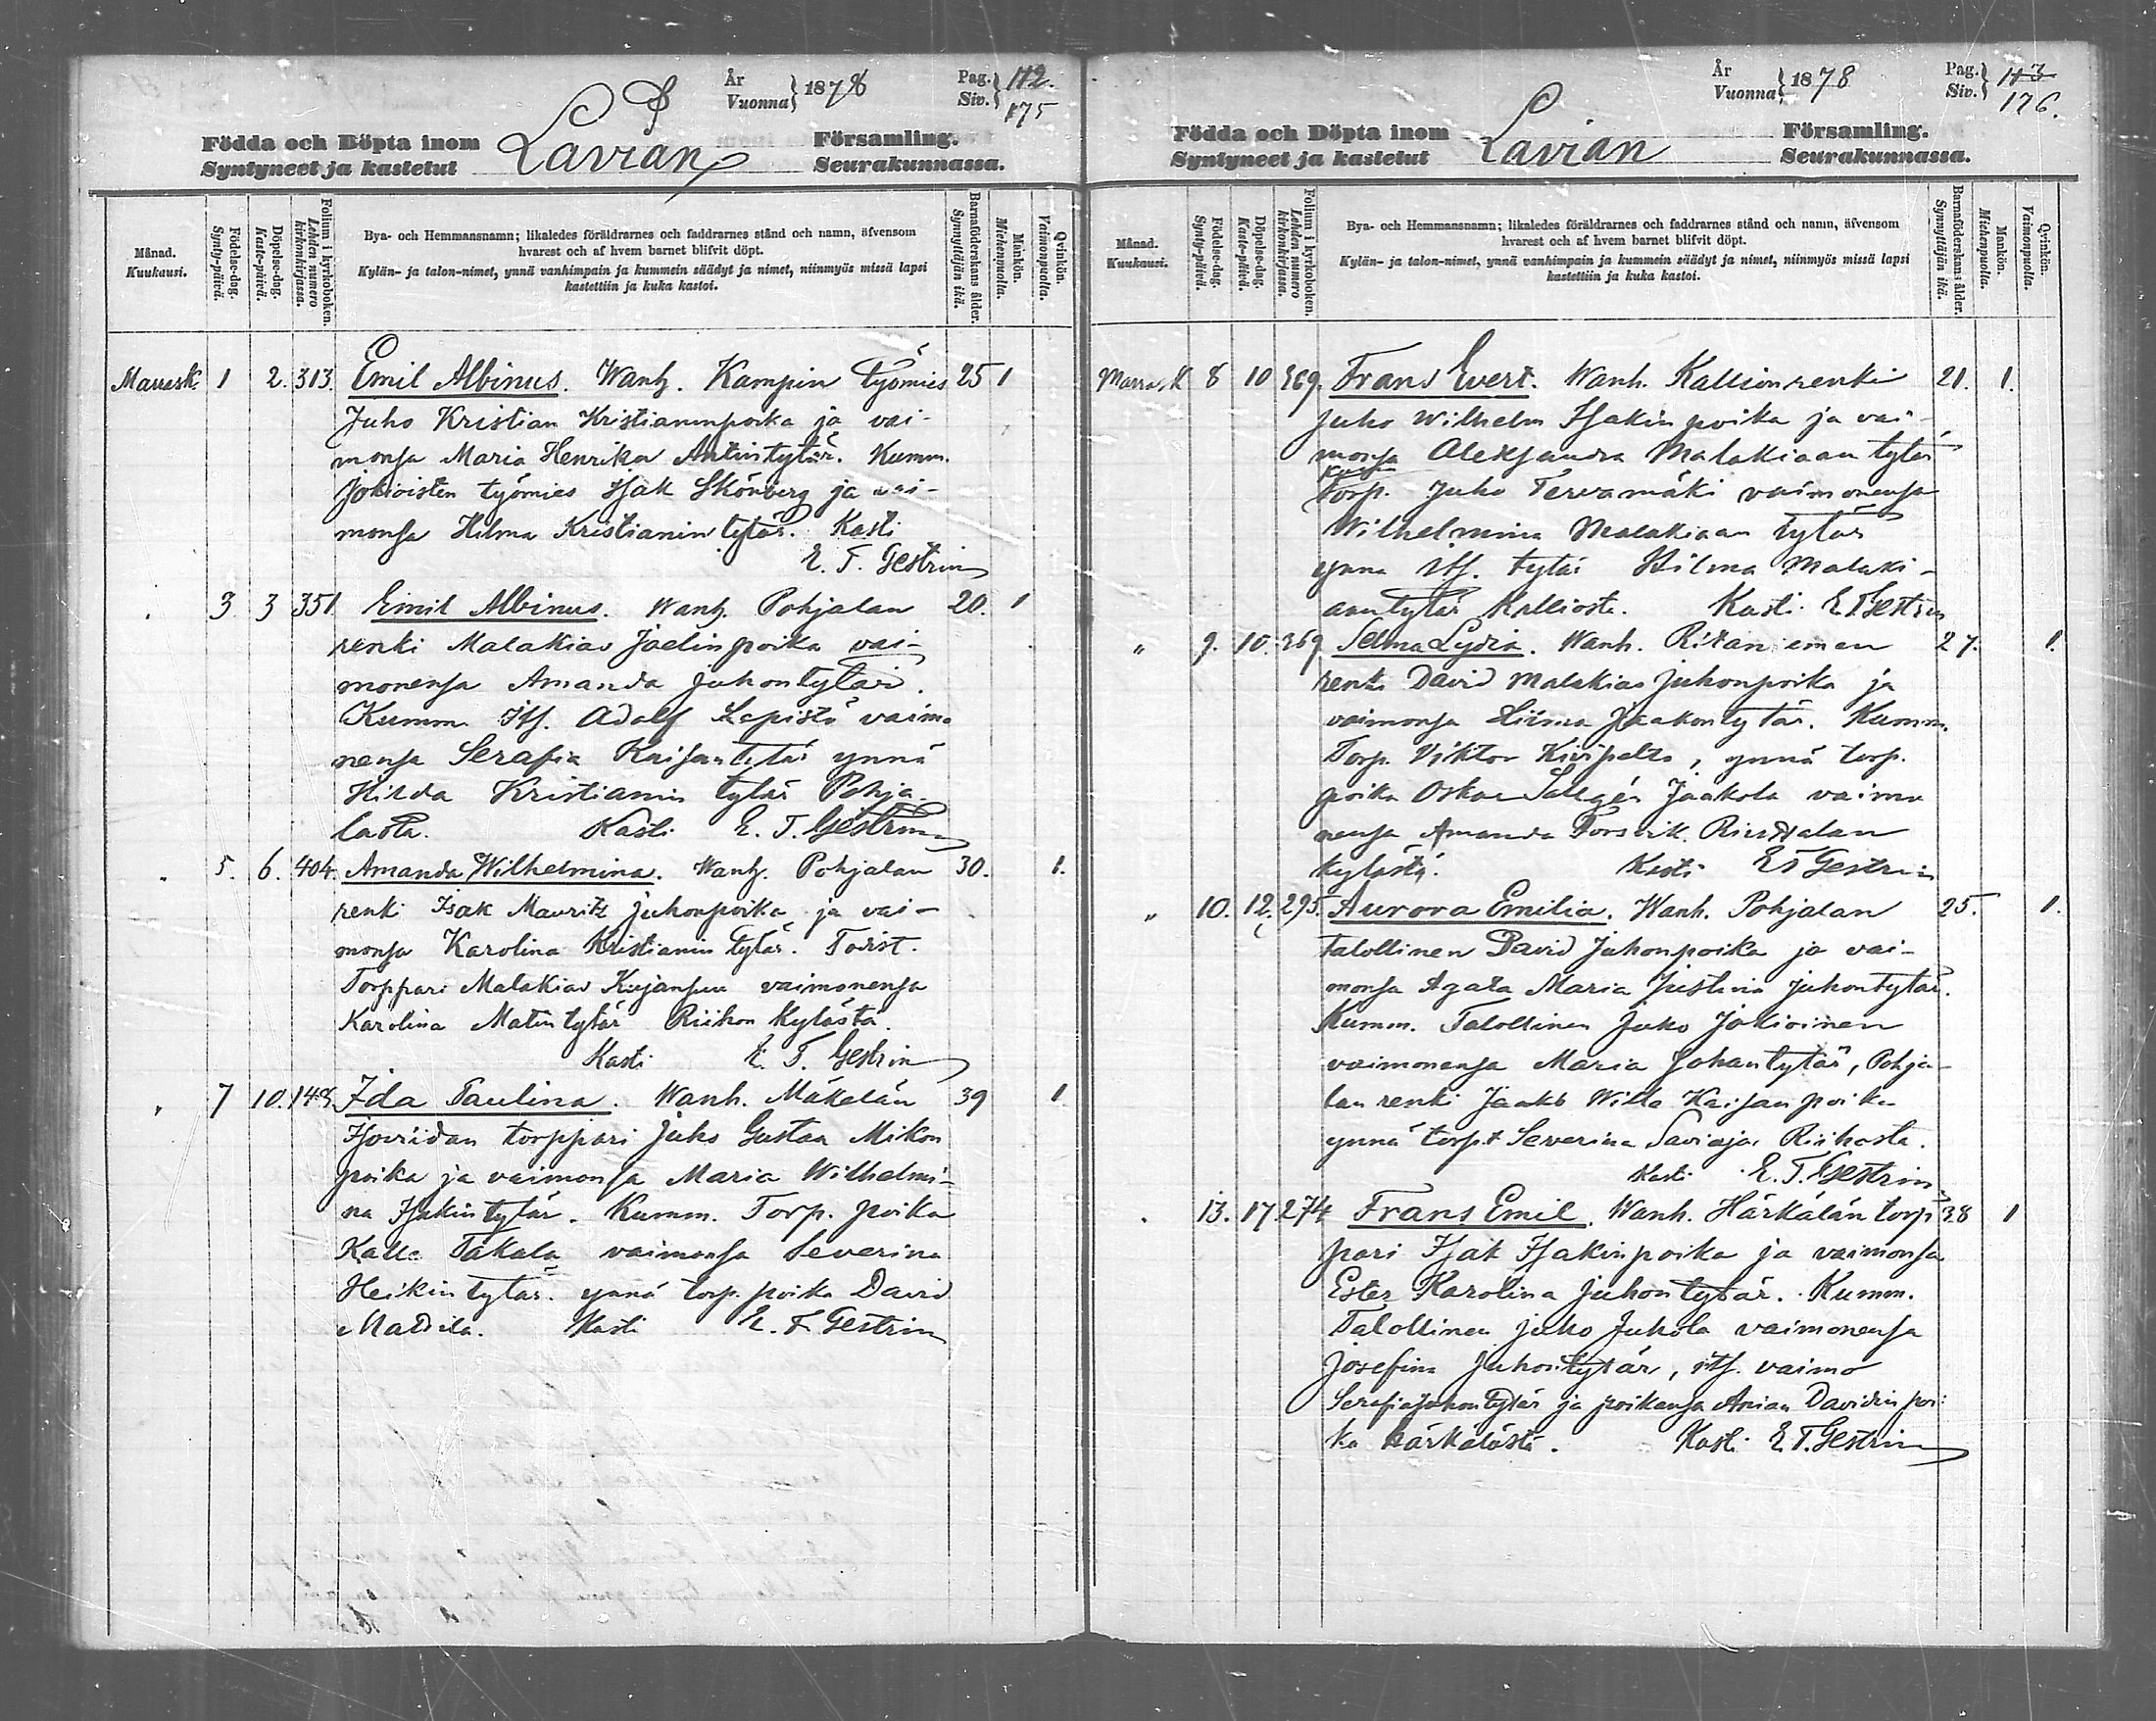 År
Vuonna } 1878
Pag.
Siv. } 112.
175
Födda och Döpta inom
Syntyneet ja kastetut
Lavian
Församling.
Seurakunnassa.
Månad.
Kuukausi.
Födelse-dag.
Synty-päivä.
Döpelse-dag.
Kaste-päivä.
Folium i kyrkoboken.
Lehden numero kirkonkirjassa.
Bya- och Hemmansnamn; likaledes föräldrarnes och faddrarnes stånd och namn, äfvensom
hvarest och af hvem barnet blifvit döpt.
Kylän- ja talon-nimet, ynnä vanhimpain ja kummein säädyt ja nimet, niinmyös missä lapsi
kastettiin ja kuka kastoi.
Barnaföderskans ålder.
Synnyttäjän ikä.
Mankön.
Miehenpuolta.
Qvinkön.
Vaimonpuolta.
Marrask. 1 2. 313. Emil Albinus. Wanh. Kampin työmies 25 1
Juho Kristian Kristianinpoika ja vai-
monsa Maria Henrika Antintytär. Kumm.
Jokioisten työmies Isak Skönberg ja vai-
monsa Hilma Kristianintytär. Kasti
E. T. Gestrin
3. 3 351 Emil Albinus. Wanh. Pohjalan 20. 1
renki Malakias Joelinpoika vai-
monensa Amanda Juhontytär.
Kumm. Itf. Adolf Lepistö vaimo
nensa Serafia Kaisantytär ynnä
Hilda Kristianin tytär Pohja-
lasta. Kasti E. T. Gestrin
5. 6. 404. Amanda Wilhelmina. Wanh. Pohjalan 30. 1.
renki Isak Mauritz Juhonpoika ja vai-
monsa Karolina Kristianin tytär. Todist.
Torppari Malakias Kujansuu vaimonensa
Karolina Matintytär Riihon kylästä.
Kasti E. T. Gestrin
7 10. 149. Ida Paulina. Wanh. Mäkelän 39 1
torppari Juho Gustaa Mikon
poika ja vaimonsa Maria Wilhelmi-
na Isakintytär. Kumm. Torp. poika
Kalle Takala vaimonsa Severina
Heikintytär. ynnä torp. poika David
Mattila. Kasti E. T. Gestrin
År
Vuonna } 1878
Pag.
Siv. } 113
176.
Födda och Döpta inom
Syntyneet ja kastetut
Lavian
Församling.
Seurakunnassa.
Månad.
Kuukausi.
Födelse-dag.
Synty-päivä.
Döpelse-dag.
Kaste-päivä.
Folium i kyrkoboken.
Lehden numero kirkonkirjassa.
Bya- och Hemmansnamn; likaledes föräldrarnes och faddrarnes stånd och namn, äfvensom
hvarest och af hvem barnet blifvit döpt.
Kylän- ja talon-nimet, ynnä vanhimpain ja kummein säädyt ja nimet, niinmyös missä lapsi
kastettiin ja kuka kastoi.
Barnaföderskans ålder.
Synnyttäjän ikä.
Mankön.
Miehenpuolta.
Qvinkön.
Vaimonpuolta.
Marrask 8 10 369. Frans Evert. Wanh. Kallion renki 21. 1.
Juho Wilhelm Isakin poika ja vai-
monsa Aleksandra Malakiaan tytär
Kumm
Torp. Juho Tervamäki vaimonensa
Wilhelmina Malakiaan tytär
ynnä itf. tytär Hilma Malaki-
aantytär Kalliosta. Kasti E T Gestrin
" 9. 10. 369 Selma Lydia. Wanh. Ritaniemen 27. 1.
renki David Malakias Juhonpoika ja
vaimonsa Hilma Jaakontytär. Kumm.
Torp. Viktor Kivipelto, ynnä torp.
poika Oskar Jaakola vaimo
nensa Amanda
kylästä. Kasti E T Gestrin
" 10. 12. 295. Aurora Emilia. Wanh. Pohjalan 25. 1.
talollinen David Juhonpoika ja vai-
monsa Agata Maria Justina Juhontytär.
Kumm. Talollinen Juho Jokioinen
vaimonensa Maria Johantytär, Pohja-
lan renki Jaakko Wille Kaisan poika
ynnä torp.t Severina Saviaja Riihosta.
Kasti E. T. Gestrin
13. 17. 274 Frans Emil. Wanh. Härkälän torp 38 1
pari Isak Isakinpoika ja vaimonsa
Ester Karolina Juhontytär. Kumm.
Talollinen Juho Juhola vaimonensa
Josefina Juhontytär, itf. vaimo
Serafia Juhontytär ja poikansa Davidin poi-
ka Härkälästä. Kasti E. T. Gestrin